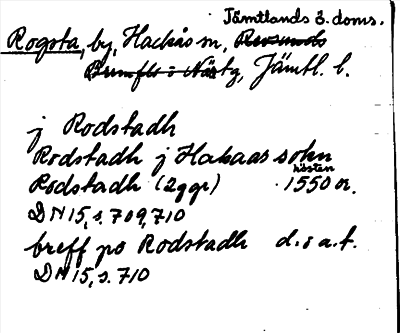 Jämtlands ö. doms.
Rogsta, by, Hackås sn, Revsunds
Brunflo o Näs tg, Jämtl. l.
j Rodstadh
Rodstadh j Hakaas sokn
Rodstadh (2 ggr) hösten 1550 n.
DN 15, s. 709, 710
breff po Rodstadh d. s a. t.
DN 15, s. 710